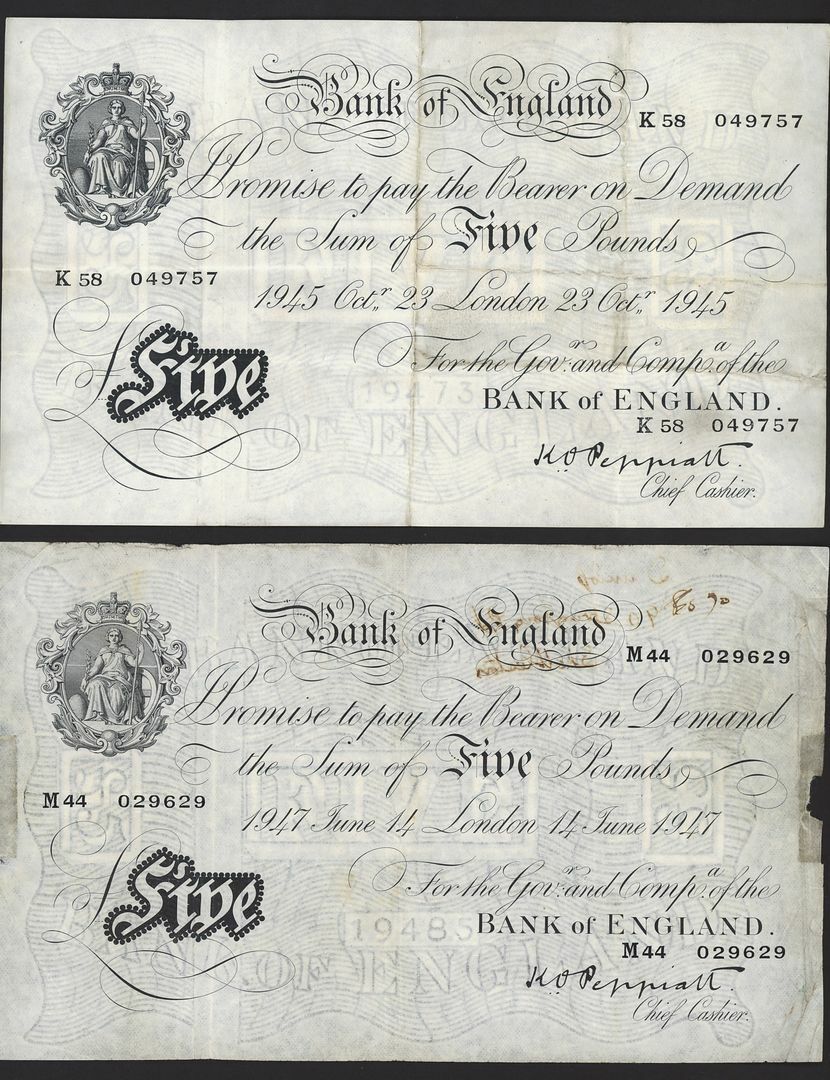 Bank of England
K 58 049757
Promise to pay the Bearer on Demand
the Sum of Five Pounds
K 58 049757
1945 Octr. 23 London 23 Octr. 1945
For the Govr. and Compa. of the
£Five
19473
BANK of ENGLAND.
K 58 049757
OF ENGLAND
K.O. Peppiatt.
Chief Cashier.
Bank of England
M 44 029629
Promise to pay the Bearer on Demand
the Sum of Five Pounds
M 44 029629
1947 June 14 London 14 June 1947
For the Govr. and Compa. of the
£Five
19485
BANK of ENGLAND.
M 44 029629
OF ENGLAND
K.O. Peppiatt.
Chief Cashier.